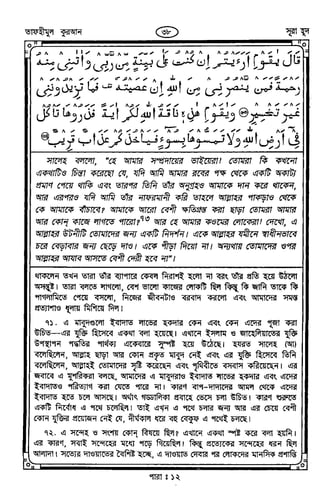 তাফহীমুল কুরআন
৩৮
সূরা হূদ
قَالَ يٰقَوْمِ اَرَءَيْتُمْ اِنْ كُنْتُ عَلٰى بَيِّنَةٍ مِّنْ رَّبِّيْ وَاٰتٰىنِيْ مِنْهُ
رَحْمَةً فَمَنْ يَّنْصُرُنِيْ مِنَ اللّٰهِ اِنْ عَصَيْتُهٗ فَمَا تَزِيْدُوْنَنِيْ
غَيْرَ تَخْسِيْرٍ وَيٰقَوْمِ هٰذِهٖ نَاقَةُ اللّٰهِ لَكُمْ اٰيَةً فَذَرُوْهَا تَاْكُلْ
فِيْٓ اَرْضِ اللّٰهِ وَلَا تَمَسُّوْهَا بِسُوْٓءٍ فَيَاْخُذَكُمْ عَذَابٌ قَرِيْبٌ
সালেহ বললো, "হে আমার সম্প্রদায়ের ভাইয়েরা! তোমরা কি কখনো
একথাটিও চিন্তা করেছো যে, যদি আমি আমার রবের পক্ষ থেকে একটি অকাট্য
প্রমাণ পেয়ে থাকি এবং তারপর তিনি তাঁর অনুগ্রহও আমাকে দান করে থাকেন,
আর এরপরও যদি আমি তাঁর নাফরমানী করি তাহলে আল্লাহর পাকড়াও থেকে
কে আমাকে বাঁচাবে? আমাকে আরো বেশী ক্ষতিগ্রস্ত করা ছাড়া তোমরা আমার
আর কোন্ কাজে লাগতে পারো?৭৩ আর হে আমার কওমের লোকেরা! দেখো, এ
আল্লাহর উটনীটি তোমাদের জন্য একটি নিদর্শন। একে আল্লাহর যমীনে স্বাধীনভাবে
চরে বেড়াবার জন্য ছেড়ে দাও। একে পীড়া দিয়ো না। অন্যথায় তোমাদের ওপর
আল্লাহর আযাব আসতে বেশী দেরী হবে না।"
থাকলেন তখন তারা তাঁর ব্যাপারে কেবল নিরাশই হলো না বরং তাঁর প্রতি হয়ে উঠলো
অসন্তুষ্ট। তারা বলতে লাগলো, বেশ ভালো কাজের লোকটি ছিল কিন্তু কি জানি তাকে কি
পাগলামিতে পেয়ে বসলো, নিজের জীবনটাও বরবাদ করলো এবং আমাদের সমস্ত
প্রত্যাশাও ধূলায় মিশিয়ে দিল।
৭১. এ মাবুদগুলো ইবাদাত লাভের হকদার কেন এবং কেন এদের পূজা করা
উচিত—এর যুক্তি হিসেবে একথা বলা হয়েছে। এখানে ইসলাম ও জাহেলিয়াতের যুক্তি
উপস্থাপন পদ্ধতির পার্থক্য একেবারে সুস্পষ্ট হয়ে উঠেছে। হযরত সালেহ (আ)
বলেছিলেন, আল্লাহ ছাড়া আর কোন প্রকৃত মাবুদ নেই এবং এর যুক্তি হিসেবে তিনি
বলেছিলেন, আল্লাহই তোমাদের সৃষ্টি করেছেন এবং পৃথিবীতে বসবাস করিয়েছেন। এর
জবাবে এ মুশরিকরা বলছে, আমাদের এ মাবুদরাও ইবাদাত লাভের হকদার এবং এদের
ইবাদাতও পরিত্যাগ করা যেতে পারে না। কারণ বাপ-দাদাদের আমল থেকে এদের
ইবাদাত হতে চলে আসছে। অর্থাৎ গড্ডালিকা প্রবাহে ভেসে চলা উচিত। কারণ শুরুতে
একটি নির্বোধ এ পথে চলেছিল। তাই এখন এ পথে চলার জন্য আর এর চেয়ে বেশী
কোন যুক্তির প্রয়োজন নেই যে, দীর্ঘকাল ধরে বহু বেকুফ এ পথেই চলছে।
৭২. এ সন্দেহ ও সংশয় কোন্ বিষয়ে ছিল? এখানে একথা স্পষ্ট করে বলা হয়নি।
এর কারণ, সবাই সন্দেহের মধ্যে পড়ে গিয়েছিল। কিন্তু প্রত্যেকের সন্দেহের ধরন ছিল
আলাদা। সত্যের দাওয়াতের বৈশিষ্ট হচ্ছে, এ দাওয়াত দেবার পর লোকদের মানসিক প্রশান্তি
পারা : ১২